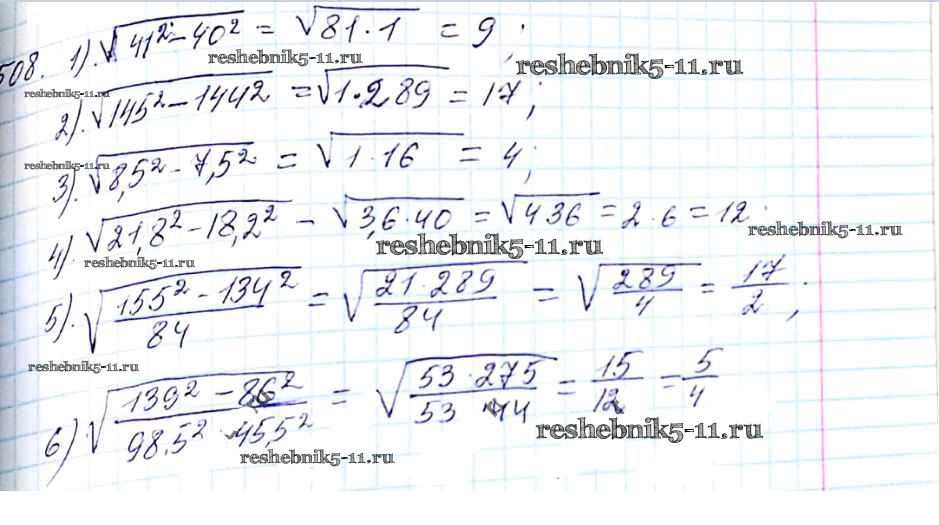 508. 1). √41² – 40² = √81·1 = 9;
reshebnik5-11.ru
reshebnik5-11.ru
reshebnik5-11.ru
2). √145² – 144² = √1·289 = 17;
reshebnik5-11.ru
3). √8,5² – 7,5² = √1·16 = 4;
4) √21,8² – 18,2² – √3,6·40 = √436 = 2·6 = 12.
reshebnik5-11.ru
reshebnik5-11.ru
reshebnik5-11.ru
5). √155² – 134²/84 = √21·289/84 = √289/4 = 17/2;
reshebnik5-11.ru
6) √139² – 86²/98.5² - 45,5² = √53·275/53 · 44 = 15/12 = 5/4
reshebnik5-11.ru
reshebnik5-11.ru